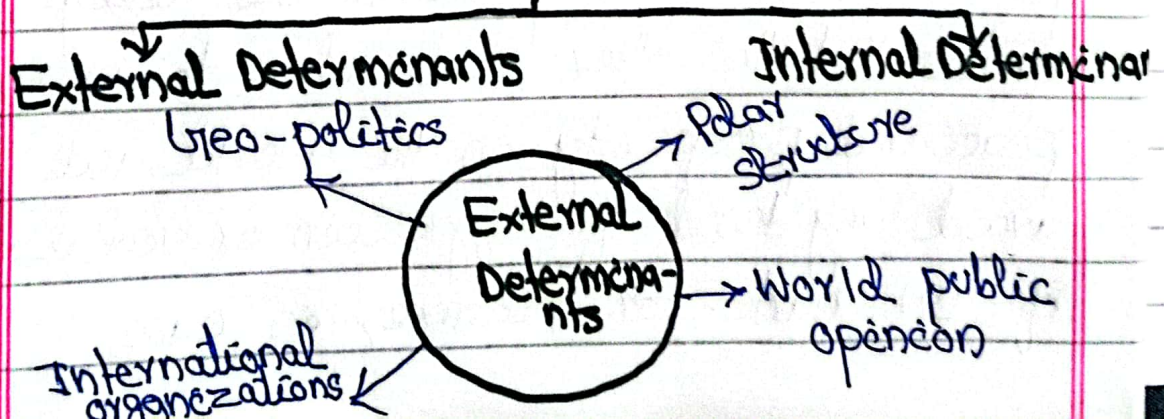 External Determinants
Internal Determinan
Geo-politics
Polar
structure
External
Determina-
nts
World public
opinion
International
organizations